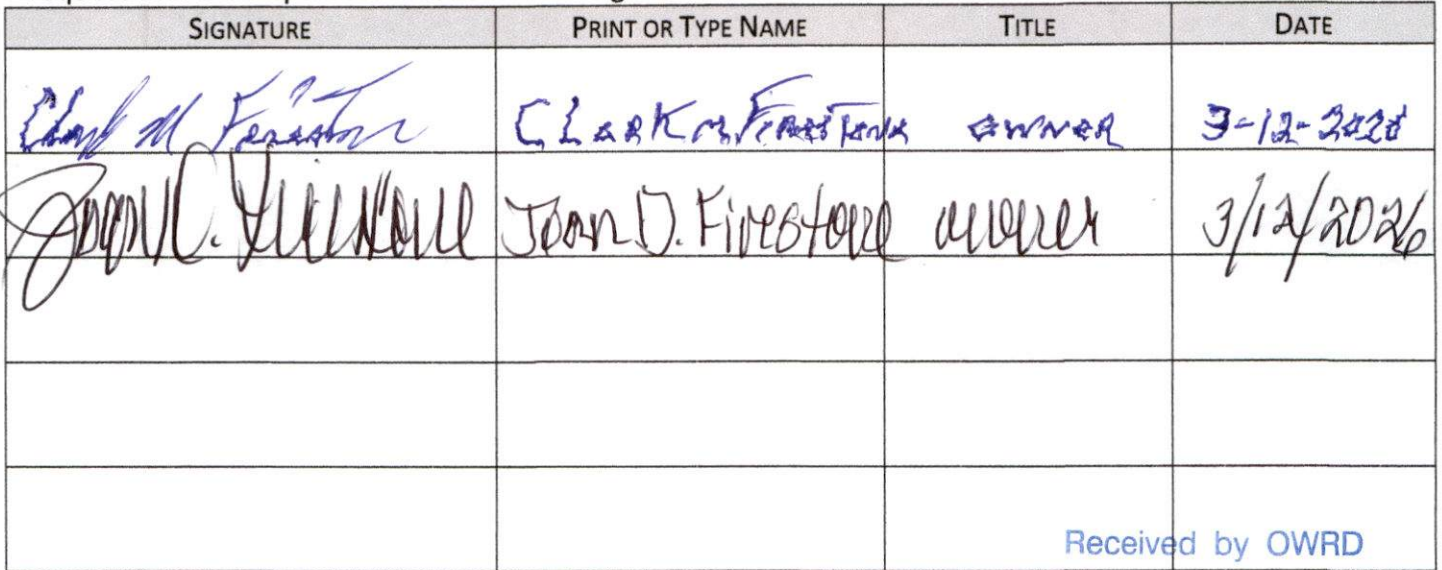 SIGNATURE PRINT OR TYPE NAME TITLE DATE
Clark M Firestone CLARK M FIRESTONE OWNER 3-12-2026
Joan D. Firestone Joan D. Firestone owner 3/12/2026
Received by OWRD